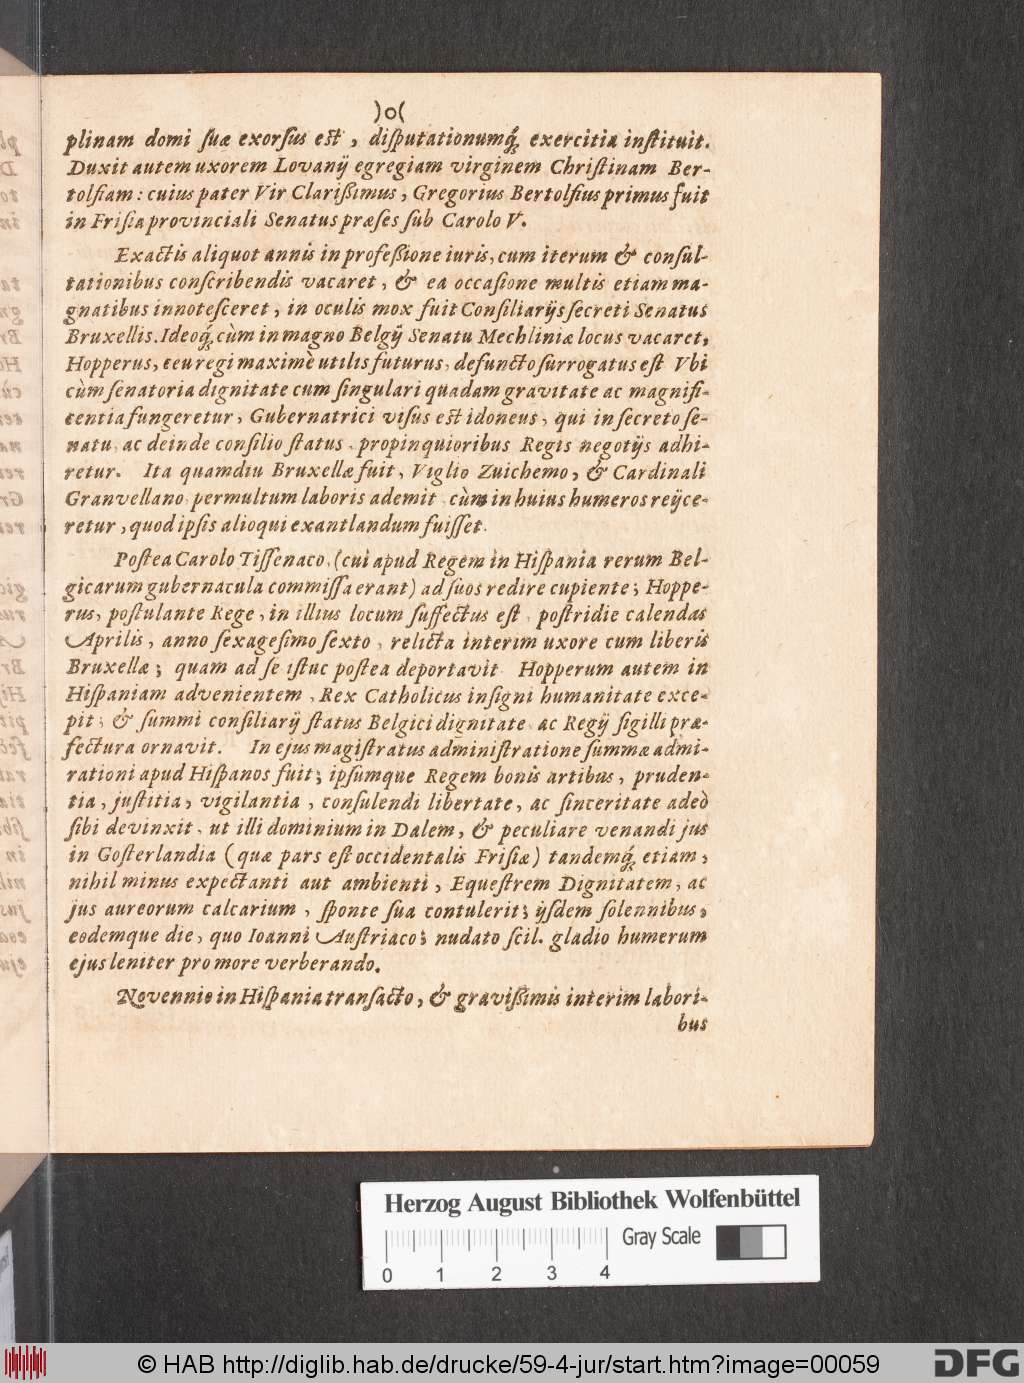 )o(
plinam domi suæ exorsus est, disputationumq́; exercitia instituit.
Duxit autem uxorem Lovanij egregiam virginem Christinam Ber-
tolfiam: cuius pater Vir Clarißimus, Gregorius Bertolfius primus fuit
in Frisia provinciali Senatus præses sub Carolo V.
Exactis aliquot annis in profeßione iuris, cum iterum & consul-
tationibus conscribendis vacaret, & ea occasione multis etiam ma-
gnatibus innotesceret, in oculis mox fuit Consiliarijs secreti Senatus
Bruxellis. Ideoq́; cùm in magno Belgij Senatu Mechliniæ locus vacaret,
Hopperus, ceu regi maximè utilis futurus, defuncto surrogatus est Vbi
cùm senatoria dignitate cum singulari quadam gravitate ac magnifi-
centia fungeretur, Gubernatrici visus est idoneus, qui in secreto se-
natu, ac deinde consilio status, propinquioribus Regis negotijs adhi-
retur. Ita quamdiu Bruxellæ fuit, Viglio Zuichemo, & Cardinali
Granvellano, permultum laboris ademit cùm in huius humeros reijce-
retur, quod ipsis alioqui exantlandum fuisset.
Postea Carolo Tissenaco, (cui apud Regem in Hispania rerum Bel-
gicarum gubernacula commissa erant) ad suos redire cupiente; Hoppe-
rus, postulante Rege, in illius locum suffectus est, postridie calendas
Aprilis, anno sexagesimo sexto, relicta interim uxore cum liberis
Bruxellæ; quam ad se istuc postea deportavit Hopperum autem in
Hispaniam advenientem, Rex Catholicus insigni humanitate exce-
pit; & summi consiliarij status Belgici dignitate ac Regij sigilli præ-
fectura ornavit. In ejus magistratus administratione summæ admi-
rationi apud Hispanos fuit; ipsumque Regem bonis artibus, pruden-
tia, justitia, vigilantia, consulendi libertate, ac sinceritate adeò
sibi devinxit, ut illi dominium in Dalem, & peculiare venandi jus
in Gosterlandia (quæ pars est occidentalis Frisiæ) tandemq́; etiam,
nihil minus expectanti aut ambienti, Equestrem Dignitatem, ac
jus aureorum calcarium, sponte sua contulerit; ijsdem solennibus,
eodemque die, quo Ioanni Austriaco; nudato scil. gladio humerum
ejus leniter pro more verberando.
Novennio in Hispania transacto, & gravißimis interim labori-
bus
Herzog August Bibliothek Wolfenbüttel
Gray Scale
0 1 2 3 4
© HAB http://diglib.hab.de/drucke/59-4-jur/start.htm?image=00059
DFG